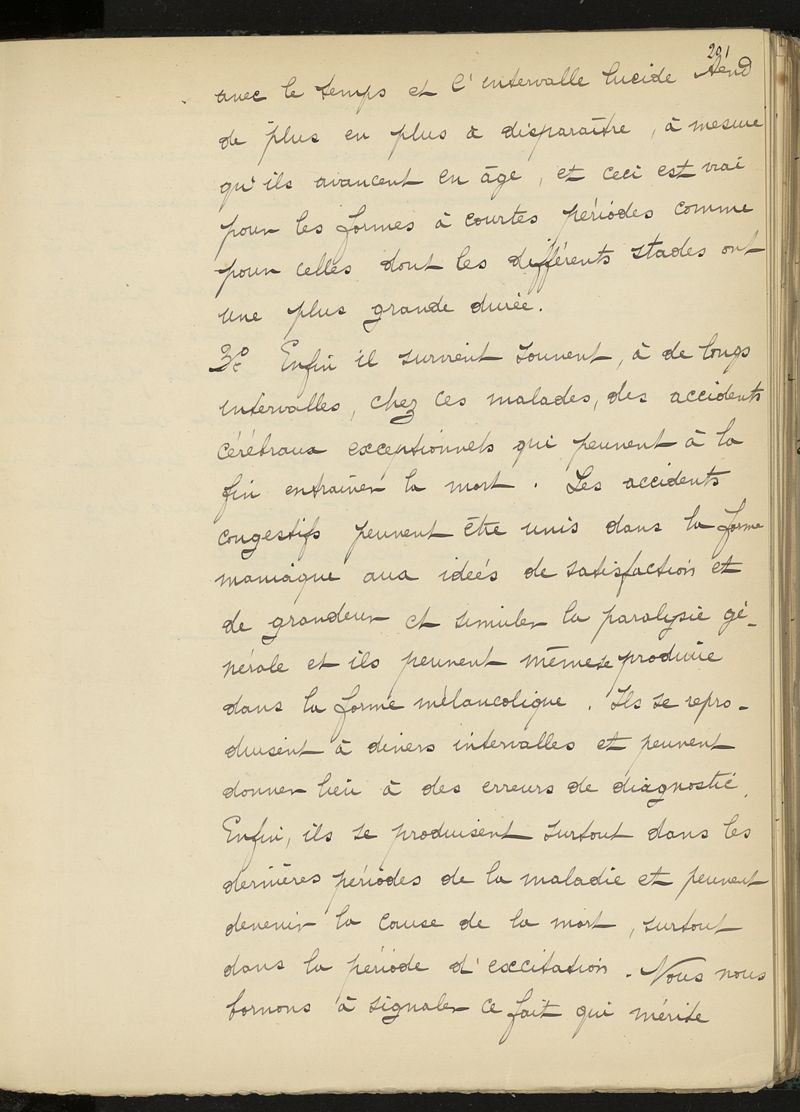 201
avec le temps et l'intervalle lucide tend
de plus en plus à disparaître, à mesure
qu'ils avancent en âge, et ceci est vrai
pour les formes à courtes périodes comme
pour celles dont les différents stades ont
une plus grande durée.
3º Enfin il survient souvent, à de longs
intervalles, chez ces malades, des accidents
cérébraux exceptionnels qui peuvent à la
fin entraîner la mort. Les accidents
congestifs peuvent être unis dans la forme
maniaque aux idées de satisfaction et
de grandeur et simuler la paralysie gé-
nérale et ils peuvent même se produire
dans la forme mélancolique. Ils se repro-
duisent à divers intervalles et peuvent
donner lieu à des erreurs de diagnostic.
Enfin, ils se produisent surtout dans les
dernières périodes de la maladie et peuvent
devenir la cause de la mort, surtout
dans la période d'excitation. Nous nous
bornons à signaler ce fait qui mérite